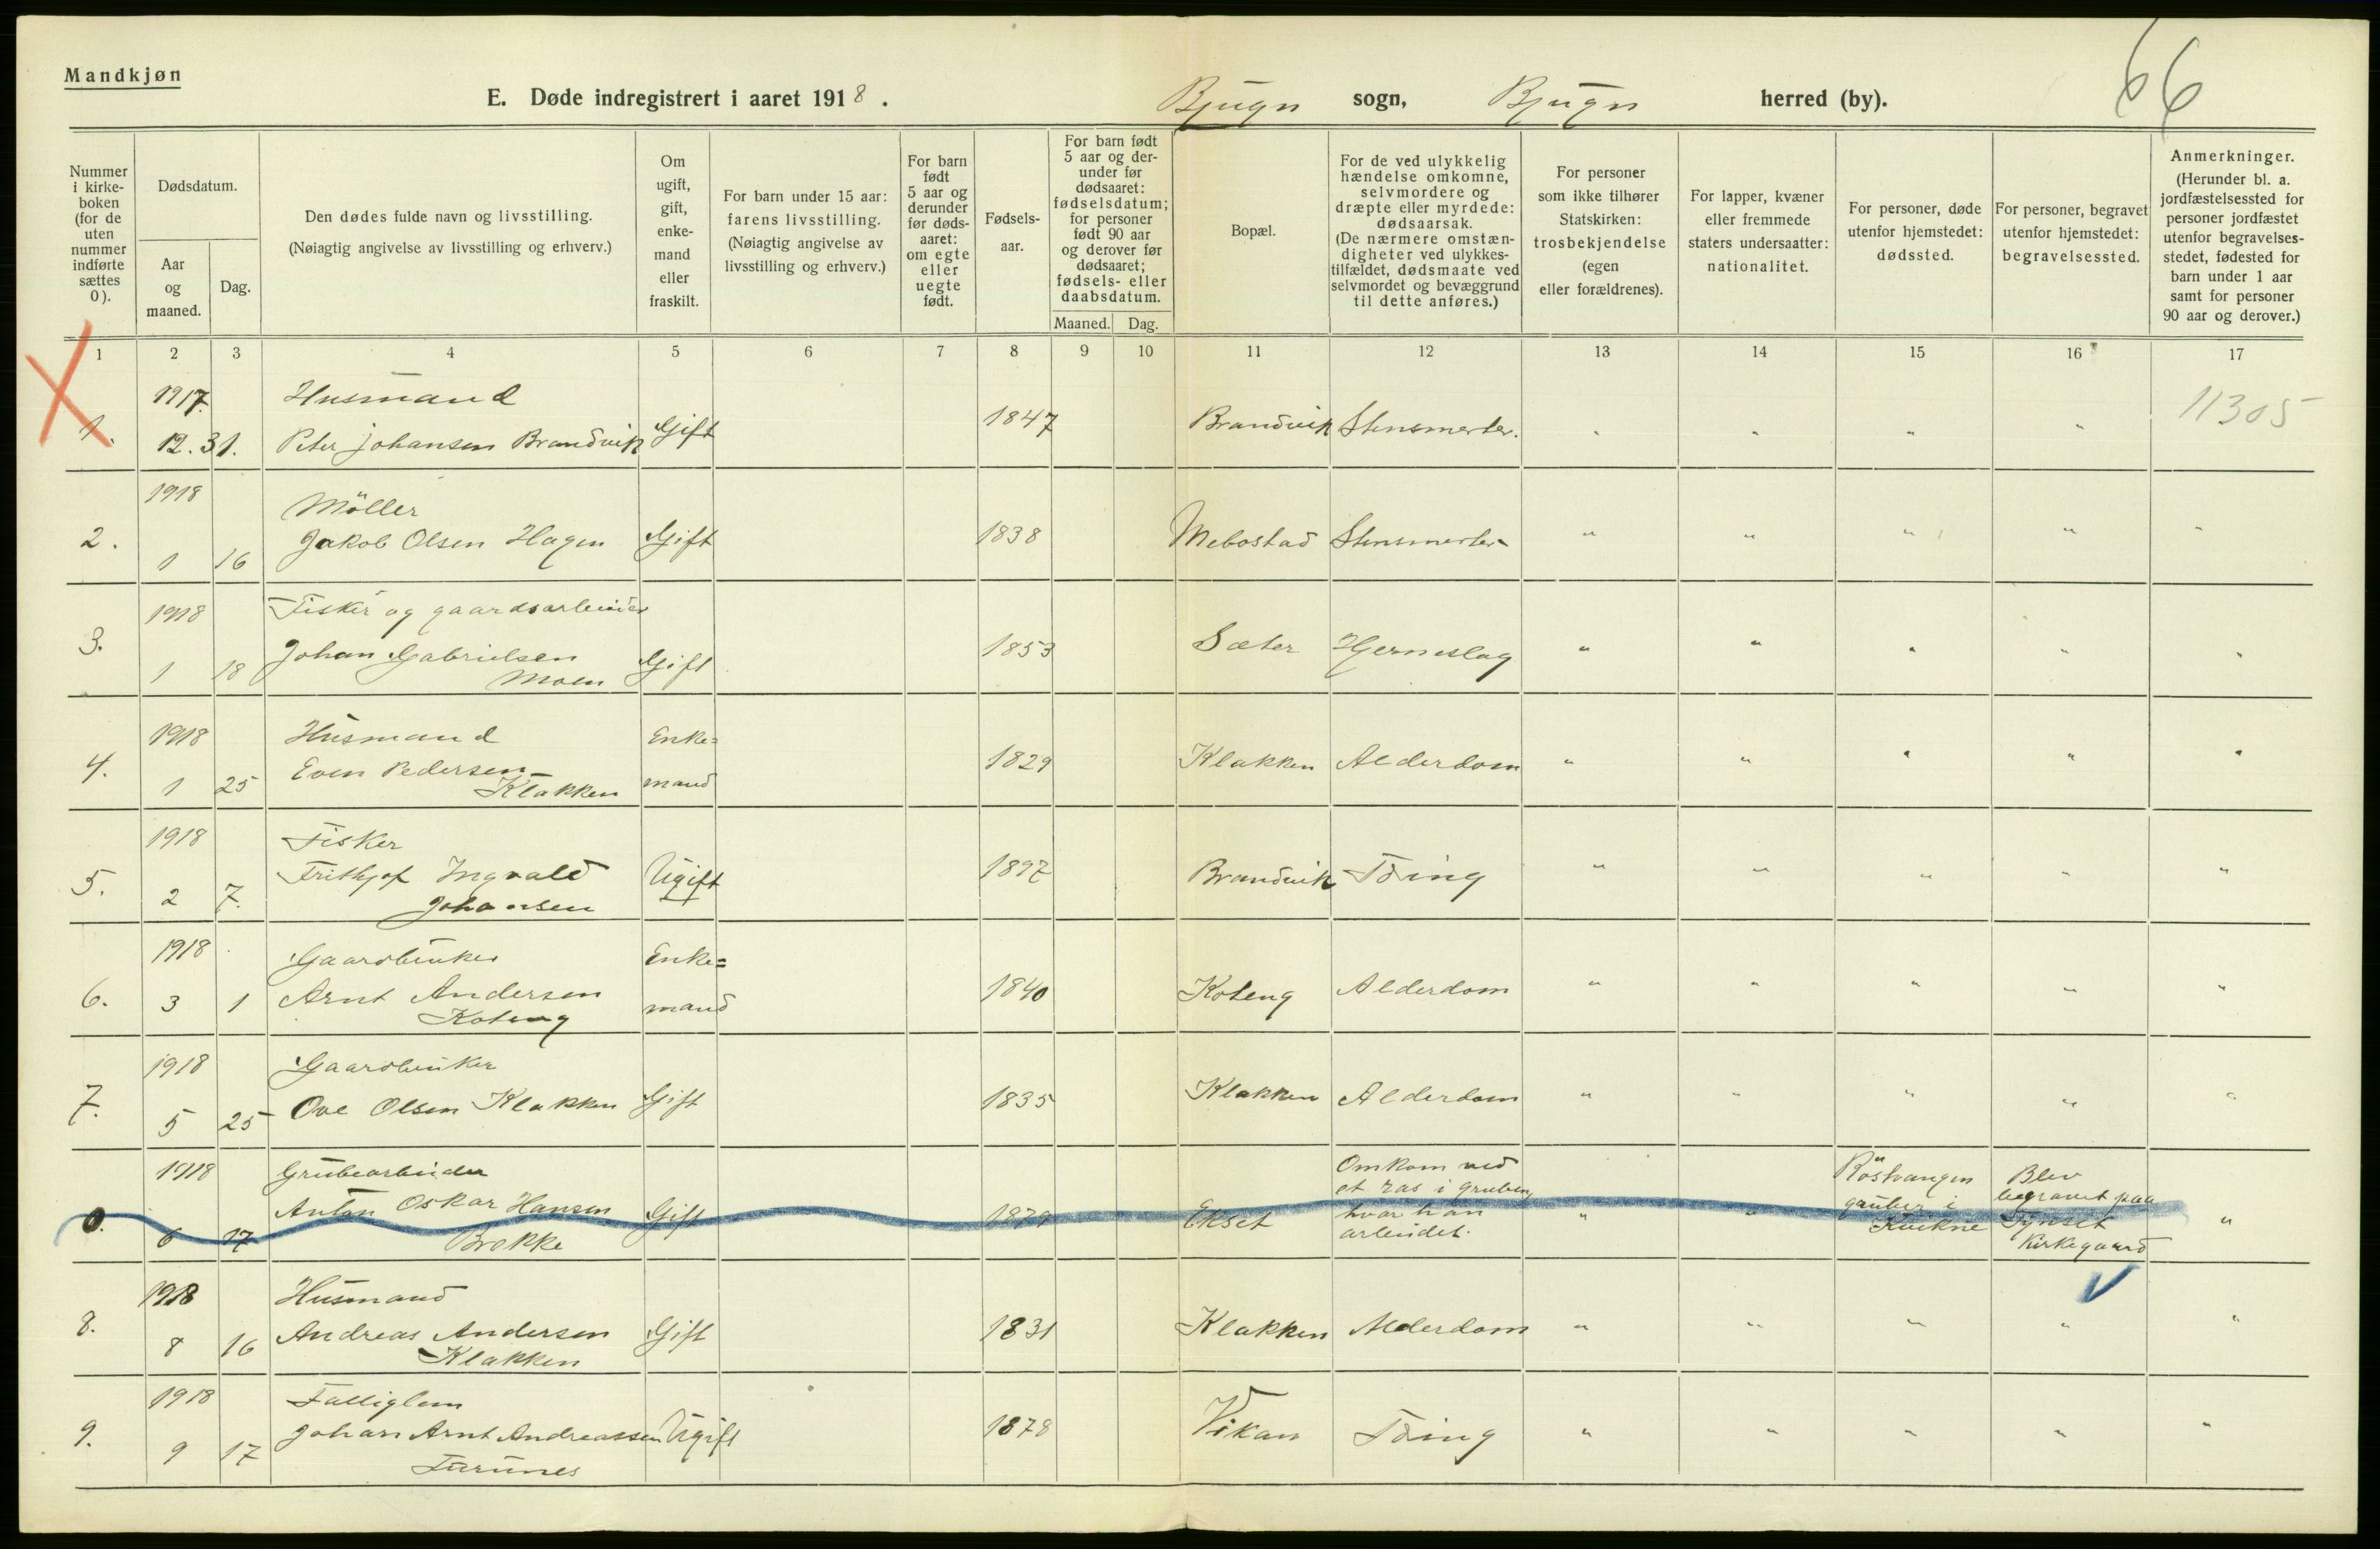 Mandkjøn
E. Døde indregistrert i aaret 1918.
Bjugn sogn, Bjugn herred (by).
66
Nummer i kirkeboken (for de uten nummer indførte sættes 0).
Dødsdatum.
Aar og maaned.
Dag.
Den dødes fulde navn og livsstilling.
(Nøiagtig angivelse av livsstilling og erhverv.)
Om ugift, gift, enkemand eller fraskilt.
For barn under 15 aar: farens livsstilling.
(Nøiagtig angivelse av livsstilling og erhverv.)
For barn født 5 aar og derunder før dødsaaret: om egte eller uegte født.
Fødselsaar.
For barn født 5 aar og derunder før dødsaaret: fødselsdatum; for personer født 90 aar og derover før dødsaaret; fødsels- eller daabsdatum.
Maaned. Dag.
Bopæl.
For de ved ulykkelig hændelse omkomne, selvmordere og dræpte eller myrdede: dødsaarsak.
(De nærmere omstændigheter ved ulykkestilfældet, dødsmaate ved selvmordet og bevæggrund til dette anføres.)
For personer som ikke tilhører Statskirken: trosbekjendelse (egen eller forældrenes).
For lapper, kvæner eller fremmede staters undersaatter: nationalitet.
For personer, døde utenfor hjemstedet: dødssted.
For personer, begravet utenfor hjemstedet: begravelsessted.
Anmerkninger.
(Herunder bl. a. jordfæstelsessted for personer jordfæstet utenfor begravelsesstedet, fødested for barn under 1 aar samt for personer 90 aar og derover.)
1 2 3 4 5 6 7 8 9 10 11 12 13 14 15 16 17
1917. Husmand
1. 12. 31. Peter Johansen Brandvik Gift 1847 Brandvik Stensmerter. " " " " 11305
1918 Möller
2. 1 16 Jakob Olsen Hagen Gift 1838 Mebostad Stensmerter " " " " "
1918 Fisker og gaardsarbeider
3. 1 18 Johan Gabrielsen Gift 1853 Sæter Hjerneslag " " " " "
Moen
1918 Husmand Enke=
4. 1 25 Even Pedersen mand 1829 Klakken Alderdom " " " " "
Klakken
1918 Fisker
5. 2 7. Frithjof Ingvald Ugift 1897 Brandvik Tæring " " " " "
Johansen
1918 Gaardbruker Enke=
6. 3 1 Arnt Andersen mand 1840 Koteng Alderdom " " " " "
Koteng
1918 Gaardbruker
7. 5 25 Ove Olsen Klakken Gift 1835 Klakken Alderdom " " " " "
1918 Grubearbeider Omkom ved Röstvangen Blev
et ras i gruben, begravet paa
0. 6 17 Anton Oskar Hansen Gift 1879 Ekset hvor han " " gruber i Tynset "
Brekke arbeidet. Kvikne Kirkegaard
1918 Husmand
8. 8 16 Andreas Andersen Gift 1831 Klakken Alderdom " " " " "
Klakken
1918 Fattiglem
9. 9 17 Johan Arnt Andreassen Ugift 1878 Vikan Tæring " " " " "
Furunes